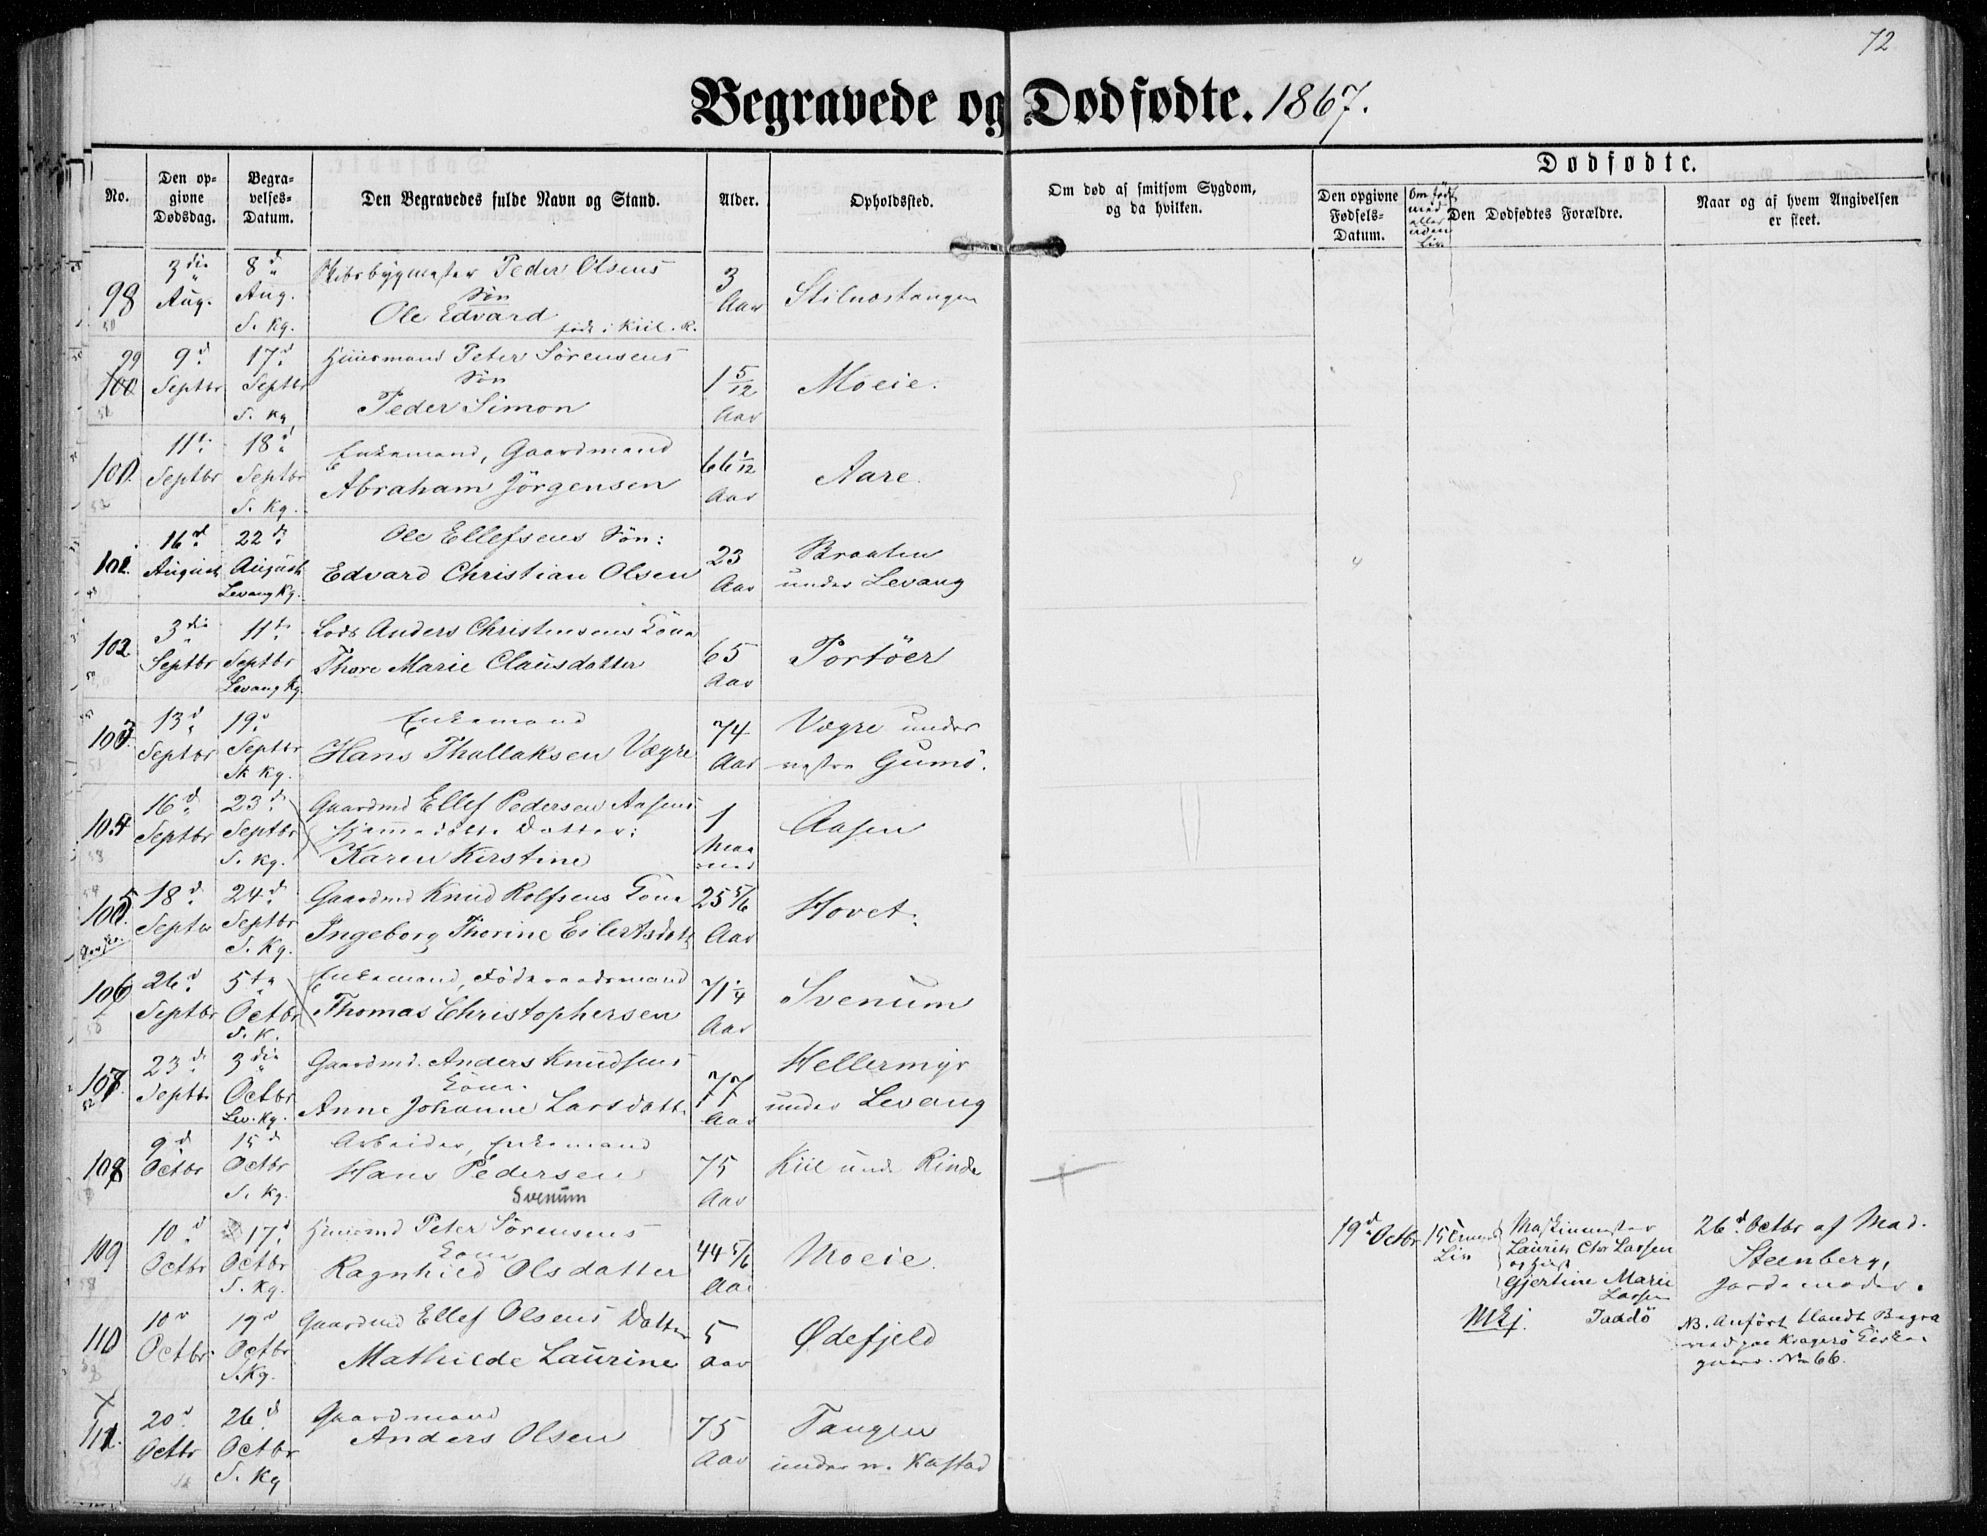 72
Begravede og Dødfødte. 1867.
Dødfødte.
No.
Den opgivne Dødsdag.
Begravelses-Datum.
Den Begravedes fulde Navn og Stand.
Alder.
Opholdssted.
Om død af smitsom Sygdom, og da hvilken.
Den opgivne Fødsels-Datum.
Om født med eller uden Liv
Den Dødfødtes Forældre.
Naar og af hvem Angivelsen er skeet.
98 3die Aug. 8d Aug. S. Kg. Skibsbygmester Peder Olsens Søn Ole Edvard født i Kiil. 3 Aar Stilnestangen
99 9d Septbr 17d Septbr S. Kg. Huusmand Peter Sørensens Søn Peder Simon 1 5/12 Aar Moeie.
100. 11t Septbr 18d Septbr S. Kg. Enkemand, Gaardmand Abraham Jørgensen 66 1/12 Aar Aare.
101. 16d August 22d August Levang Kg. Ole Ellefsens Søn: Edvard Christian Olsen 23 Aar Braaten under Levang
102. 3die Septbr 11t Septbr Levang Kg. Lods Anders Christensens Kone Thore Marie Clausdatter 65 Aar Portöer
103. 13d Septbr 19d Septbr Sk Kg. Enkemand Hans Thallaksen Vægre 74 Aar Vægre under vestre Gumö.
104 16d Septbr 23d Septbr S. Kg. Gaardmd Ellef Pedersen Aasens hjemmedøbte Datter: Karen Kirstine 1 Maaned Aasen
105. 18d Septbr 24d Septbr S. Kg. Gaardmd Knud Rolfsens Kone Ingeborg Thorine Eilertsdatt 25 5/6 Aar Hovet.
106 26d Septbr 5te Octbr S. K. Enkemand, Föderaadsmand Thomas Christophersen 71 1/4 Aar Svenum
107. 23d Septbr 3die Octbr Lev. Kg. Gaardmd. Anders Knudsens Kone Anne Johanne Larsdatt. 77 Aar Hellermyr under Levang
108 9d Octbr 15d Octbr S. Kg. Arbeider, Enkemand Hans Pedersen Svenum 75 Aar Kiil under Rinde
109 10d Octbr 17d Octbr S. Kg. Huusmd Peter Sörensens Kone Ragnhild Olsdatter 44 5/6 Aar Moeie.
19d Octbr Liv Maskinmester Laurits Chr Larsen og Hust Gjertine Marie Larsen 26d. Octbr af Mad. Steenberg, Jordemoder.
MEj. Taadö NB. Anført blandt Begravede paa Kragerö Kirkegaard. No 66.
110 10d Octbr. 19d Octbr. S. Kg. Gaardmd Ellef Olsens Datter Mathilde Laurine 5 Aar Ødefjeld
111. 20d Octbr 26d Octbr S. Kg Gaardmand Anders Olsen 75 Aar Tangen under n. Kaftad